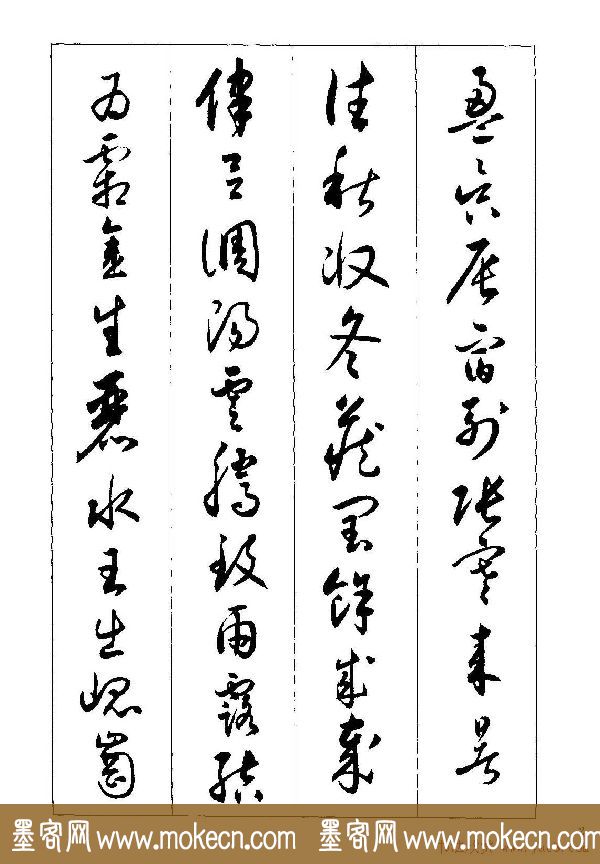 盈昃辰宿列張寒来暑
往秋收冬藏閏餘成歲
律吕調陽雲騰致雨露結
为霜金生麗水玉出崐崗
墨客网www.mokecn.com 墨客网www.mokecn.com